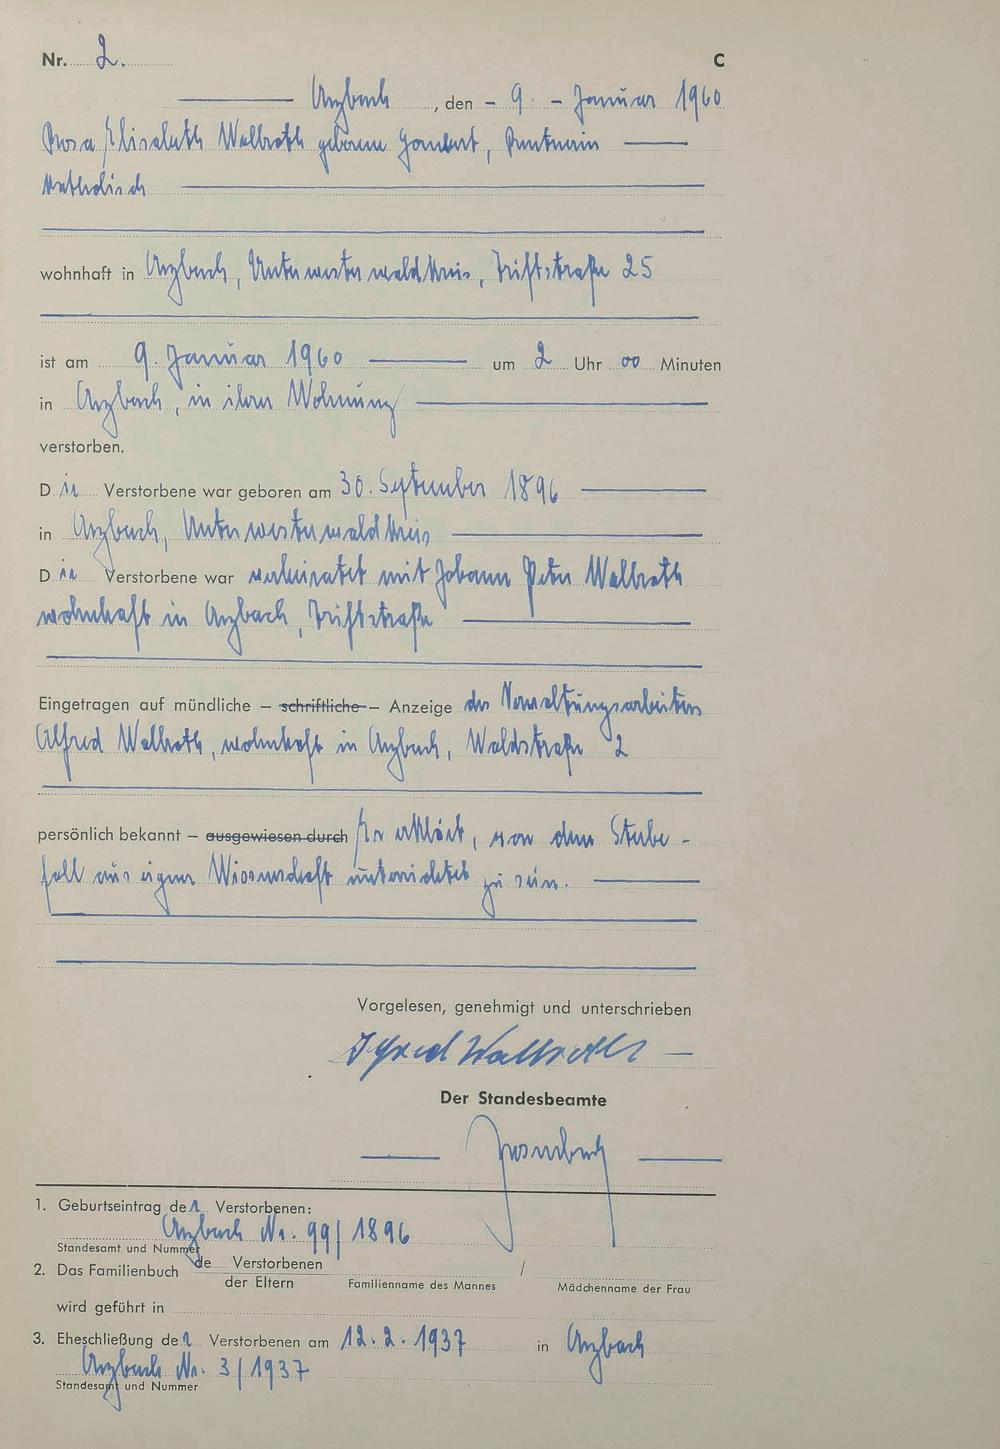 Nr. 2. C
Arzbach, den - 9. - Januar 1960
Rosa Elisabeth Wallroth geborene Gombert, Rentnerin
katholisch
wohnhaft in Arzbach, Unterwesterwaldkreis, Triftstraße 25
ist am 9. Januar 1960 um 2 Uhr 00 Minuten
in Arzbach, in ihrer Wohnung
verstorben.
Die Verstorbene war geboren am 30. September 1896
in Arzbach, Unterwesterwaldkreis
Die Verstorbene war verheiratet mit Johann Peter Wallroth
wohnhaft in Arzbach, Triftstraße
Eingetragen auf mündliche – schriftliche – Anzeige des Verwaltungsarbeiters
Alfred Wallroth, wohnhaft in Arzbach, Waldstraße 2
persönlich bekannt – ausgewiesen durch Er erklärt, von dem Sterbe-
fall aus eigner Wissenschaft unterrichtet zu sein.
Vorgelesen, genehmigt und unterschrieben
Alfred Wallroth
Der Standesbeamte
1. Geburtseintrag der Verstorbenen:
Arzbach Nr. 99/1896
Standesamt und Nummer
2. Das Familienbuch de Verstorbenen /
der Eltern Familienname des Mannes Mädchenname der Frau
wird geführt in
3. Eheschließung der Verstorbenen am 12.2.1937 in Arzbach
Arzbach Nr. 3/1937
Standesamt und Nummer